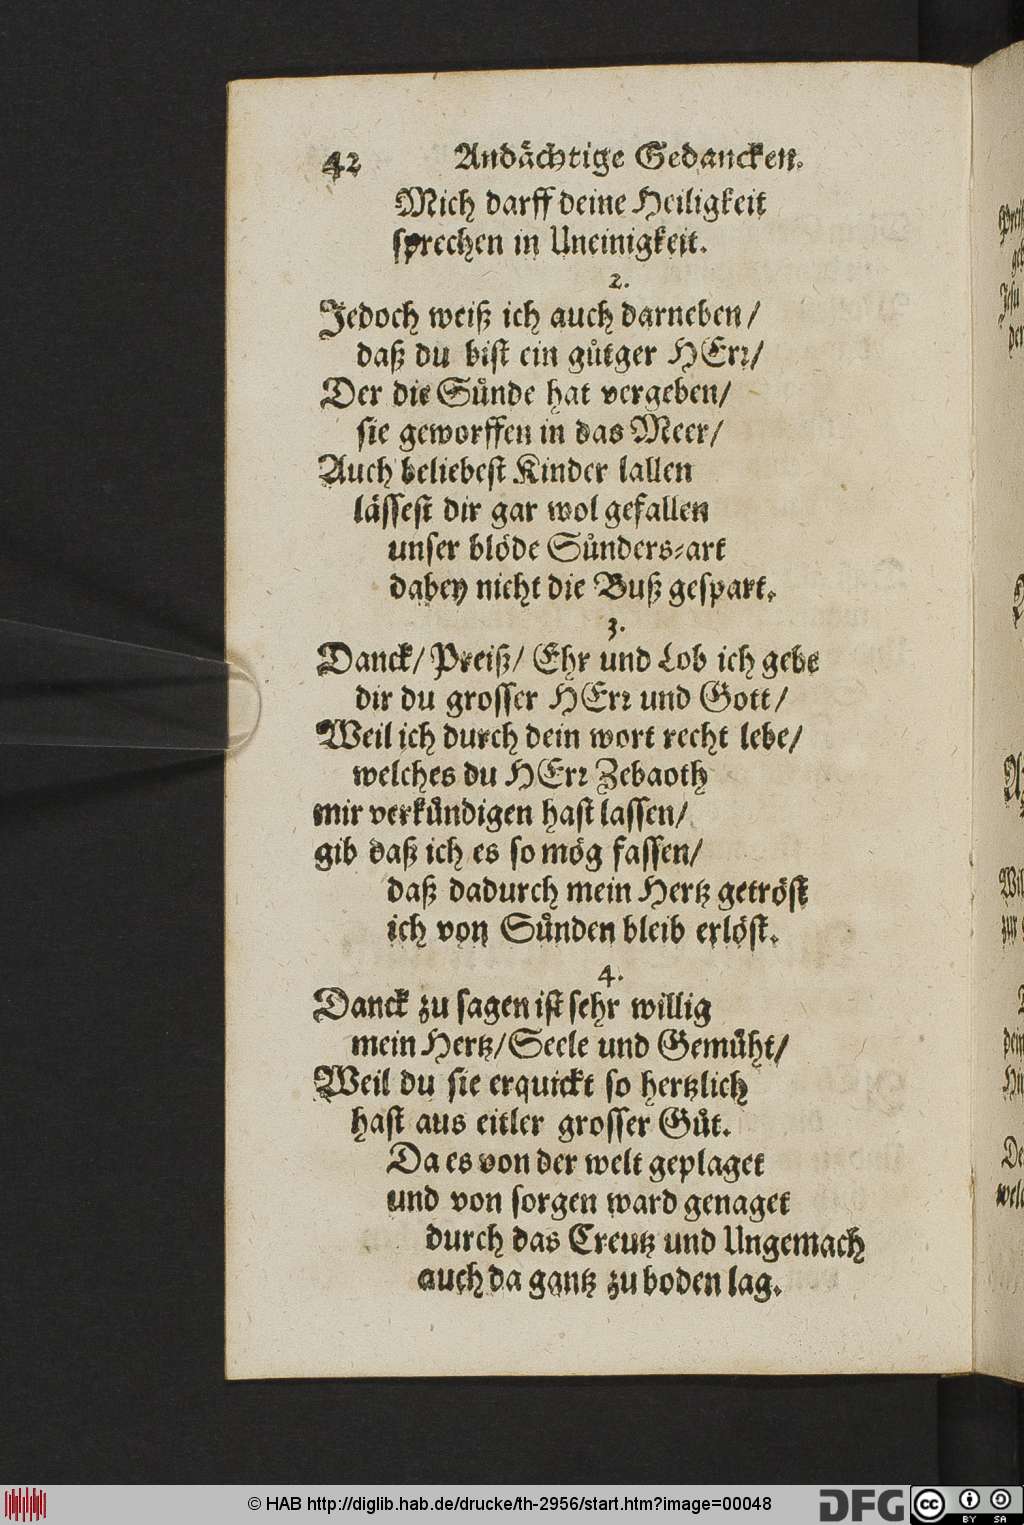 42 Andächtige Gedancken.
Mich darff deine Heiligkeit
sprechen in Uneinigkeit.
2.
Jedoch weiß ich auch darneben/
daß du bist ein gůtger HErr/
Der die Sůnde hat vergeben/
sie geworffen in das Meer/
Auch beliebest Kinder lallen
lässest dir gar wol gefallen
unser blöde Sůnders-art
dabey nicht die Buß gespart.
3.
Danck/ Preiß/ Ehr und Lob ich gebe
dir du grosser HErr und Gott/
Weil ich durch dein wort recht lebe/
welches du HErr Zebaoth
mir verkůndigen hast lassen/
gib daß ich es so mög fassen/
daß dadurch mein Hertz getröst
ich von Sůnden bleib erlöst.
4.
Danck zu sagen ist sehr willig
mein Hertz/ Seele und Gemůht/
Weil du sie erquickt so hertzlich
hast aus eitler grosser Gůt.
Da es von der welt geplaget
und von sorgen ward genaget
durch das Creutz und Ungemach
auch da gantz zu boden lag.
© HAB http://diglib.hab.de/drucke/th-2956/start.htm?image=00048
DFG
cc BY SA